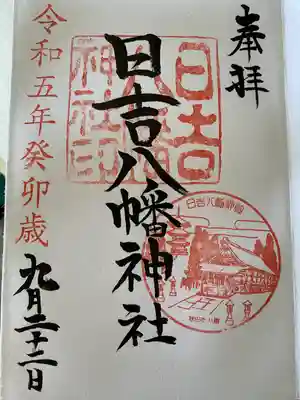 奉拝
日吉八幡神社
日吉八幡
神社印
日吉八幡神社
令和五年癸卯歳
九月二十二日